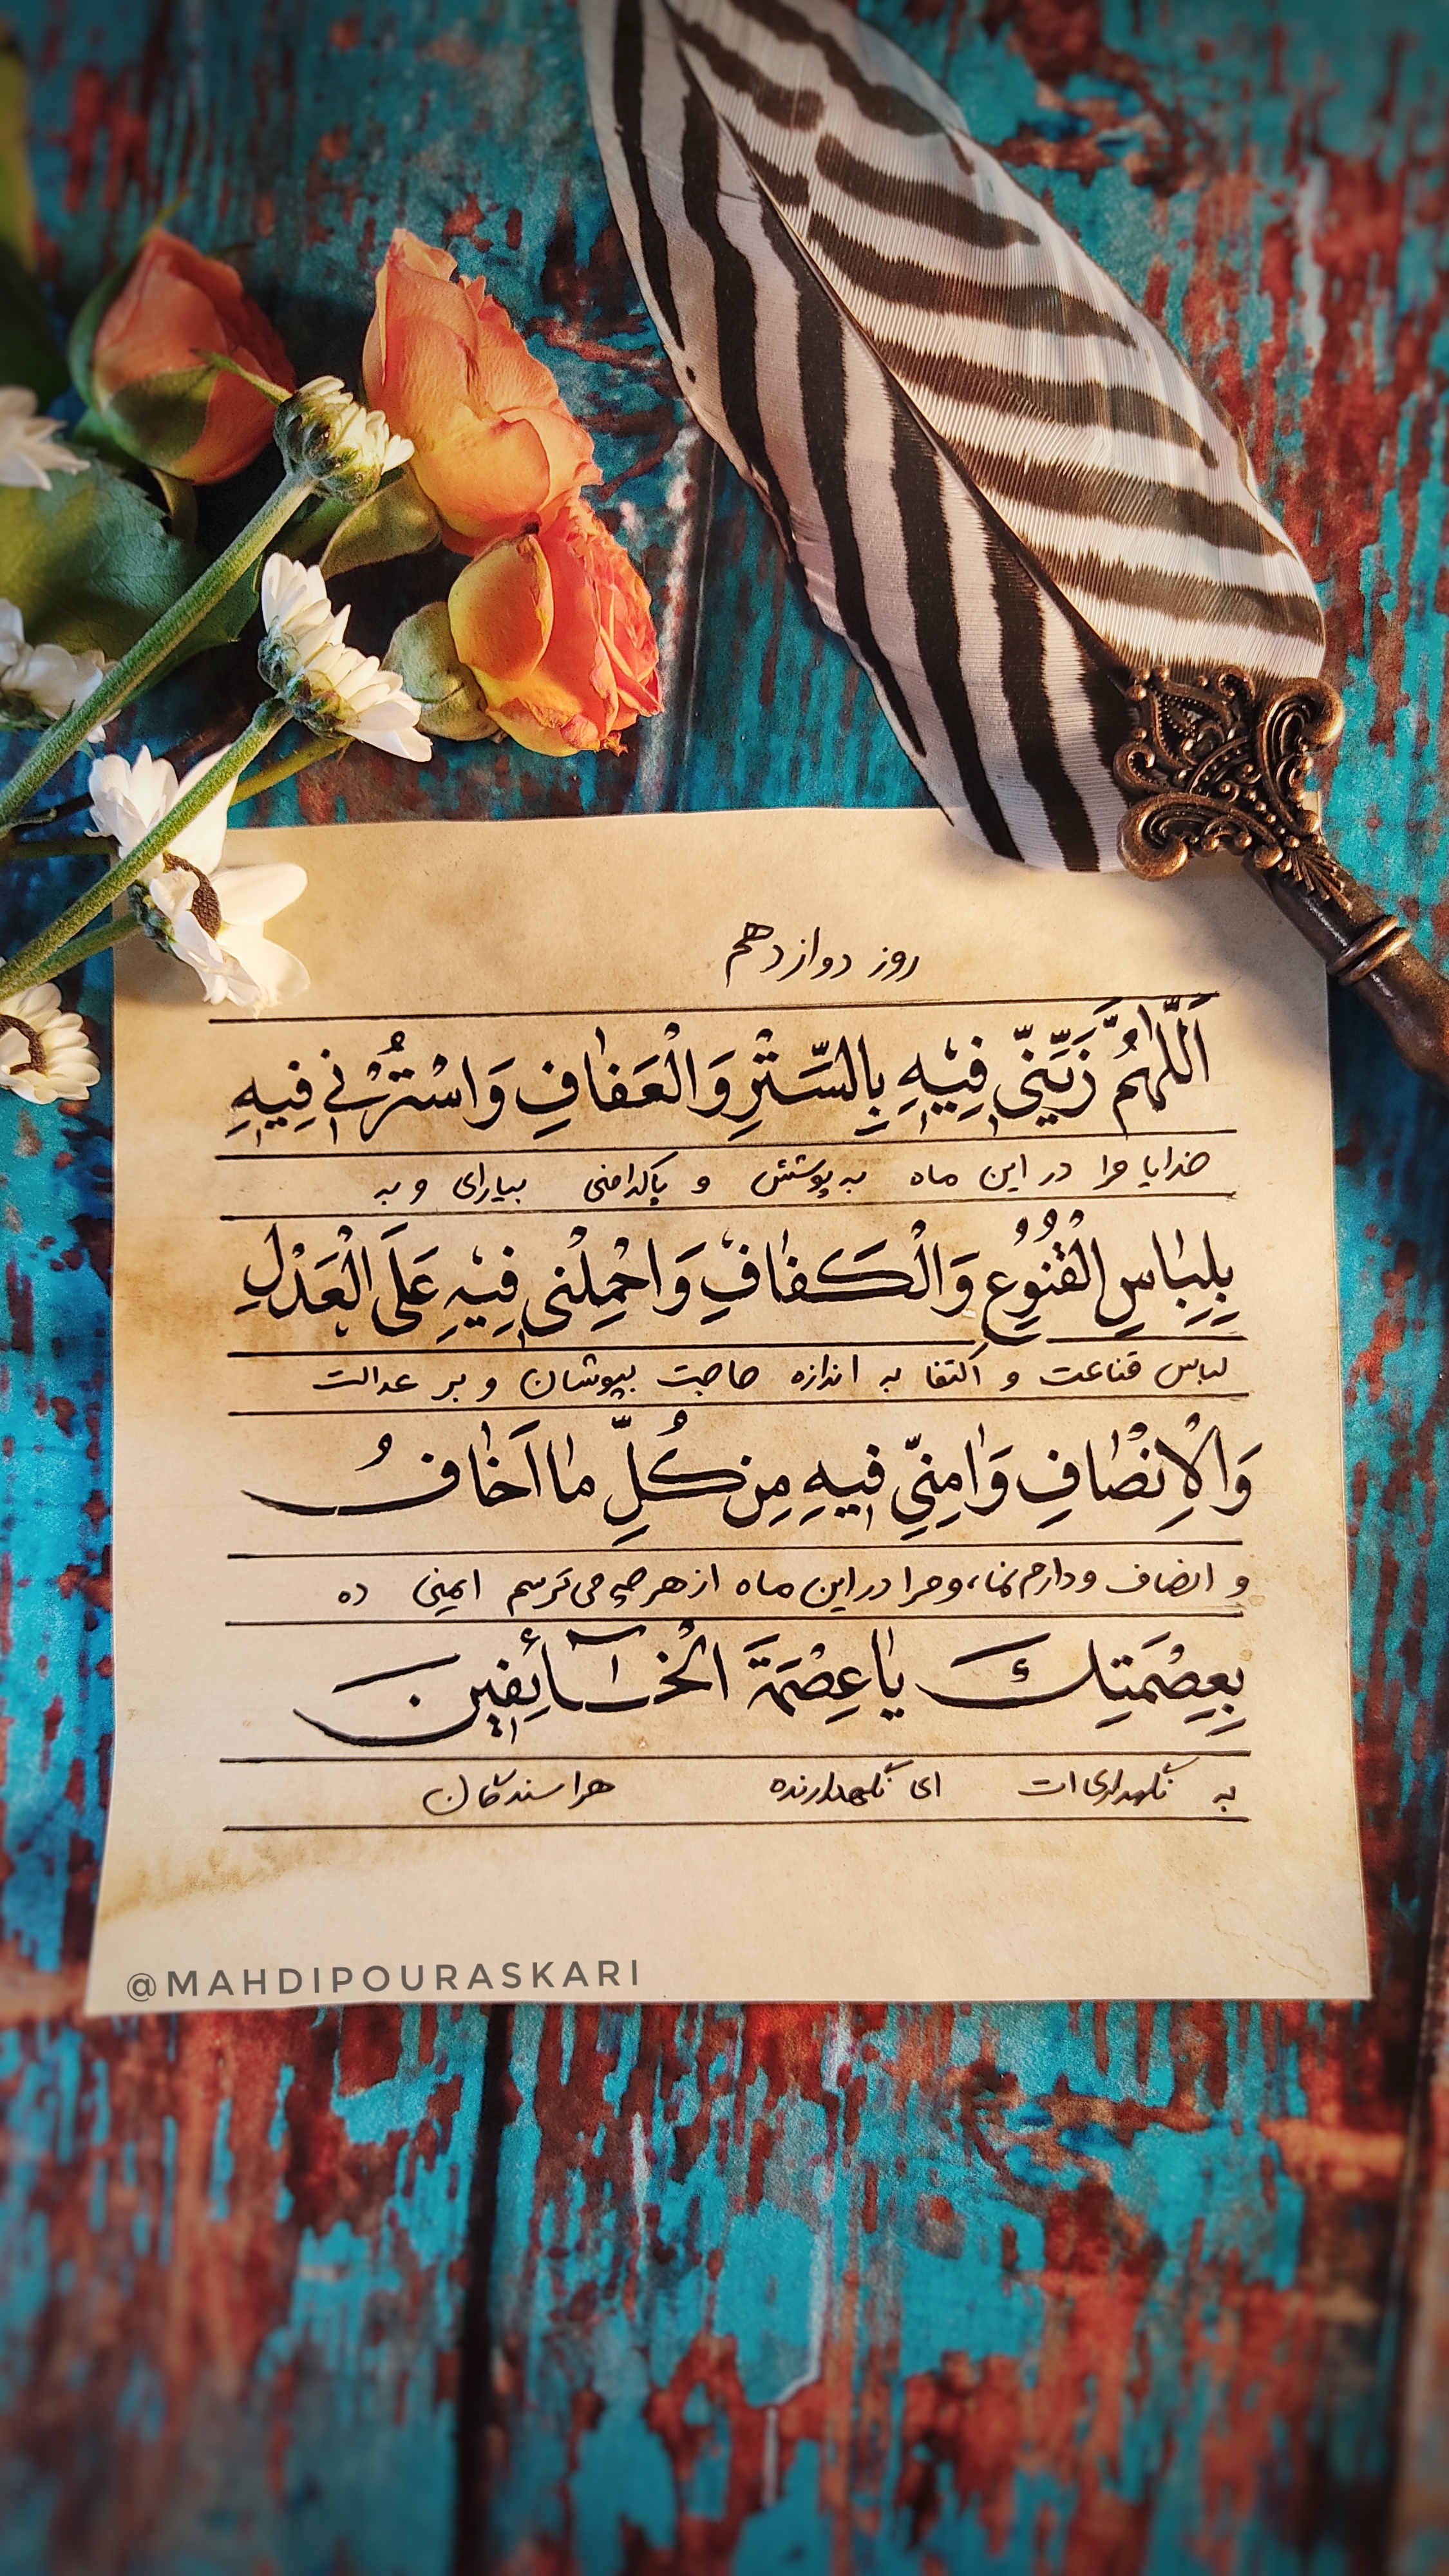 روز دوازدهم
اَللّٰهُمَّ زَيِّنّى فيٖهِ بِالسَّتْرِ وَالْعَفٰافِ وَاسْتُرْنى فيٖهِ
خدایا مرا در این ماه به پوشش و پاکدامنی بیارای و به
بِلِبٰاسِ الْقُنُوُعِ وَالْكَفٰافِ وَاحْمِلْنى فيٖهِ عَلَى الْعَدْلِ
لباس قناعت و اکتفا به اندازه حاجت بپوشان و بر عدالت
وَالْاِنْصٰافِ وَاٰمِنّىِ فيٖهِ مِن كُلِّ مٰا اَخٰافُ
و انصاف وادارم نما، و مرا در این ماه از هر چه می ترسم ایمنی ده
بِعِصْمَتِك يٰا عِصْمَةَ الْخٰآئِفينَ
به نگهداری ات ای نگهدارنده هراسندگان
@MAHDIPOURASKARI